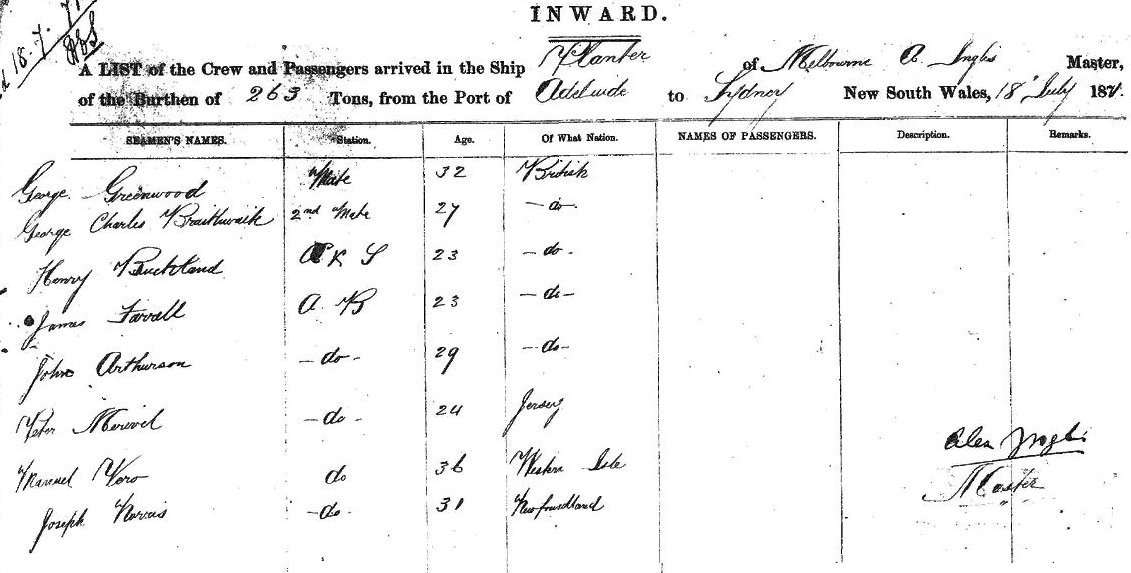 INWARD.
18.7.71
A LIST of the Crew and Passengers arrived in the Ship Planter of Melbourne A Inglis Master,
of the Burthen of 263 Tons, from the Port of Adelaide to Sydney New South Wales, 18 July 1871.
SEAMEN'S NAMES. Station. Age. Of What Nation. NAMES OF PASSENGERS. Description. Remarks.
George Greenwood Mate 32 British
George Charles Braithwaite 2nd Mate 27 - do -
Henry Buckland 23 - do -
James Farrell A B 23 - do -
John Arthurson - do - 29 - do -
Peter - do - 24 Jersey
Manuel Vero do 36 Western Isle
Joseph Norris - do - 31 Newfoundland
Alex Inglis
Master